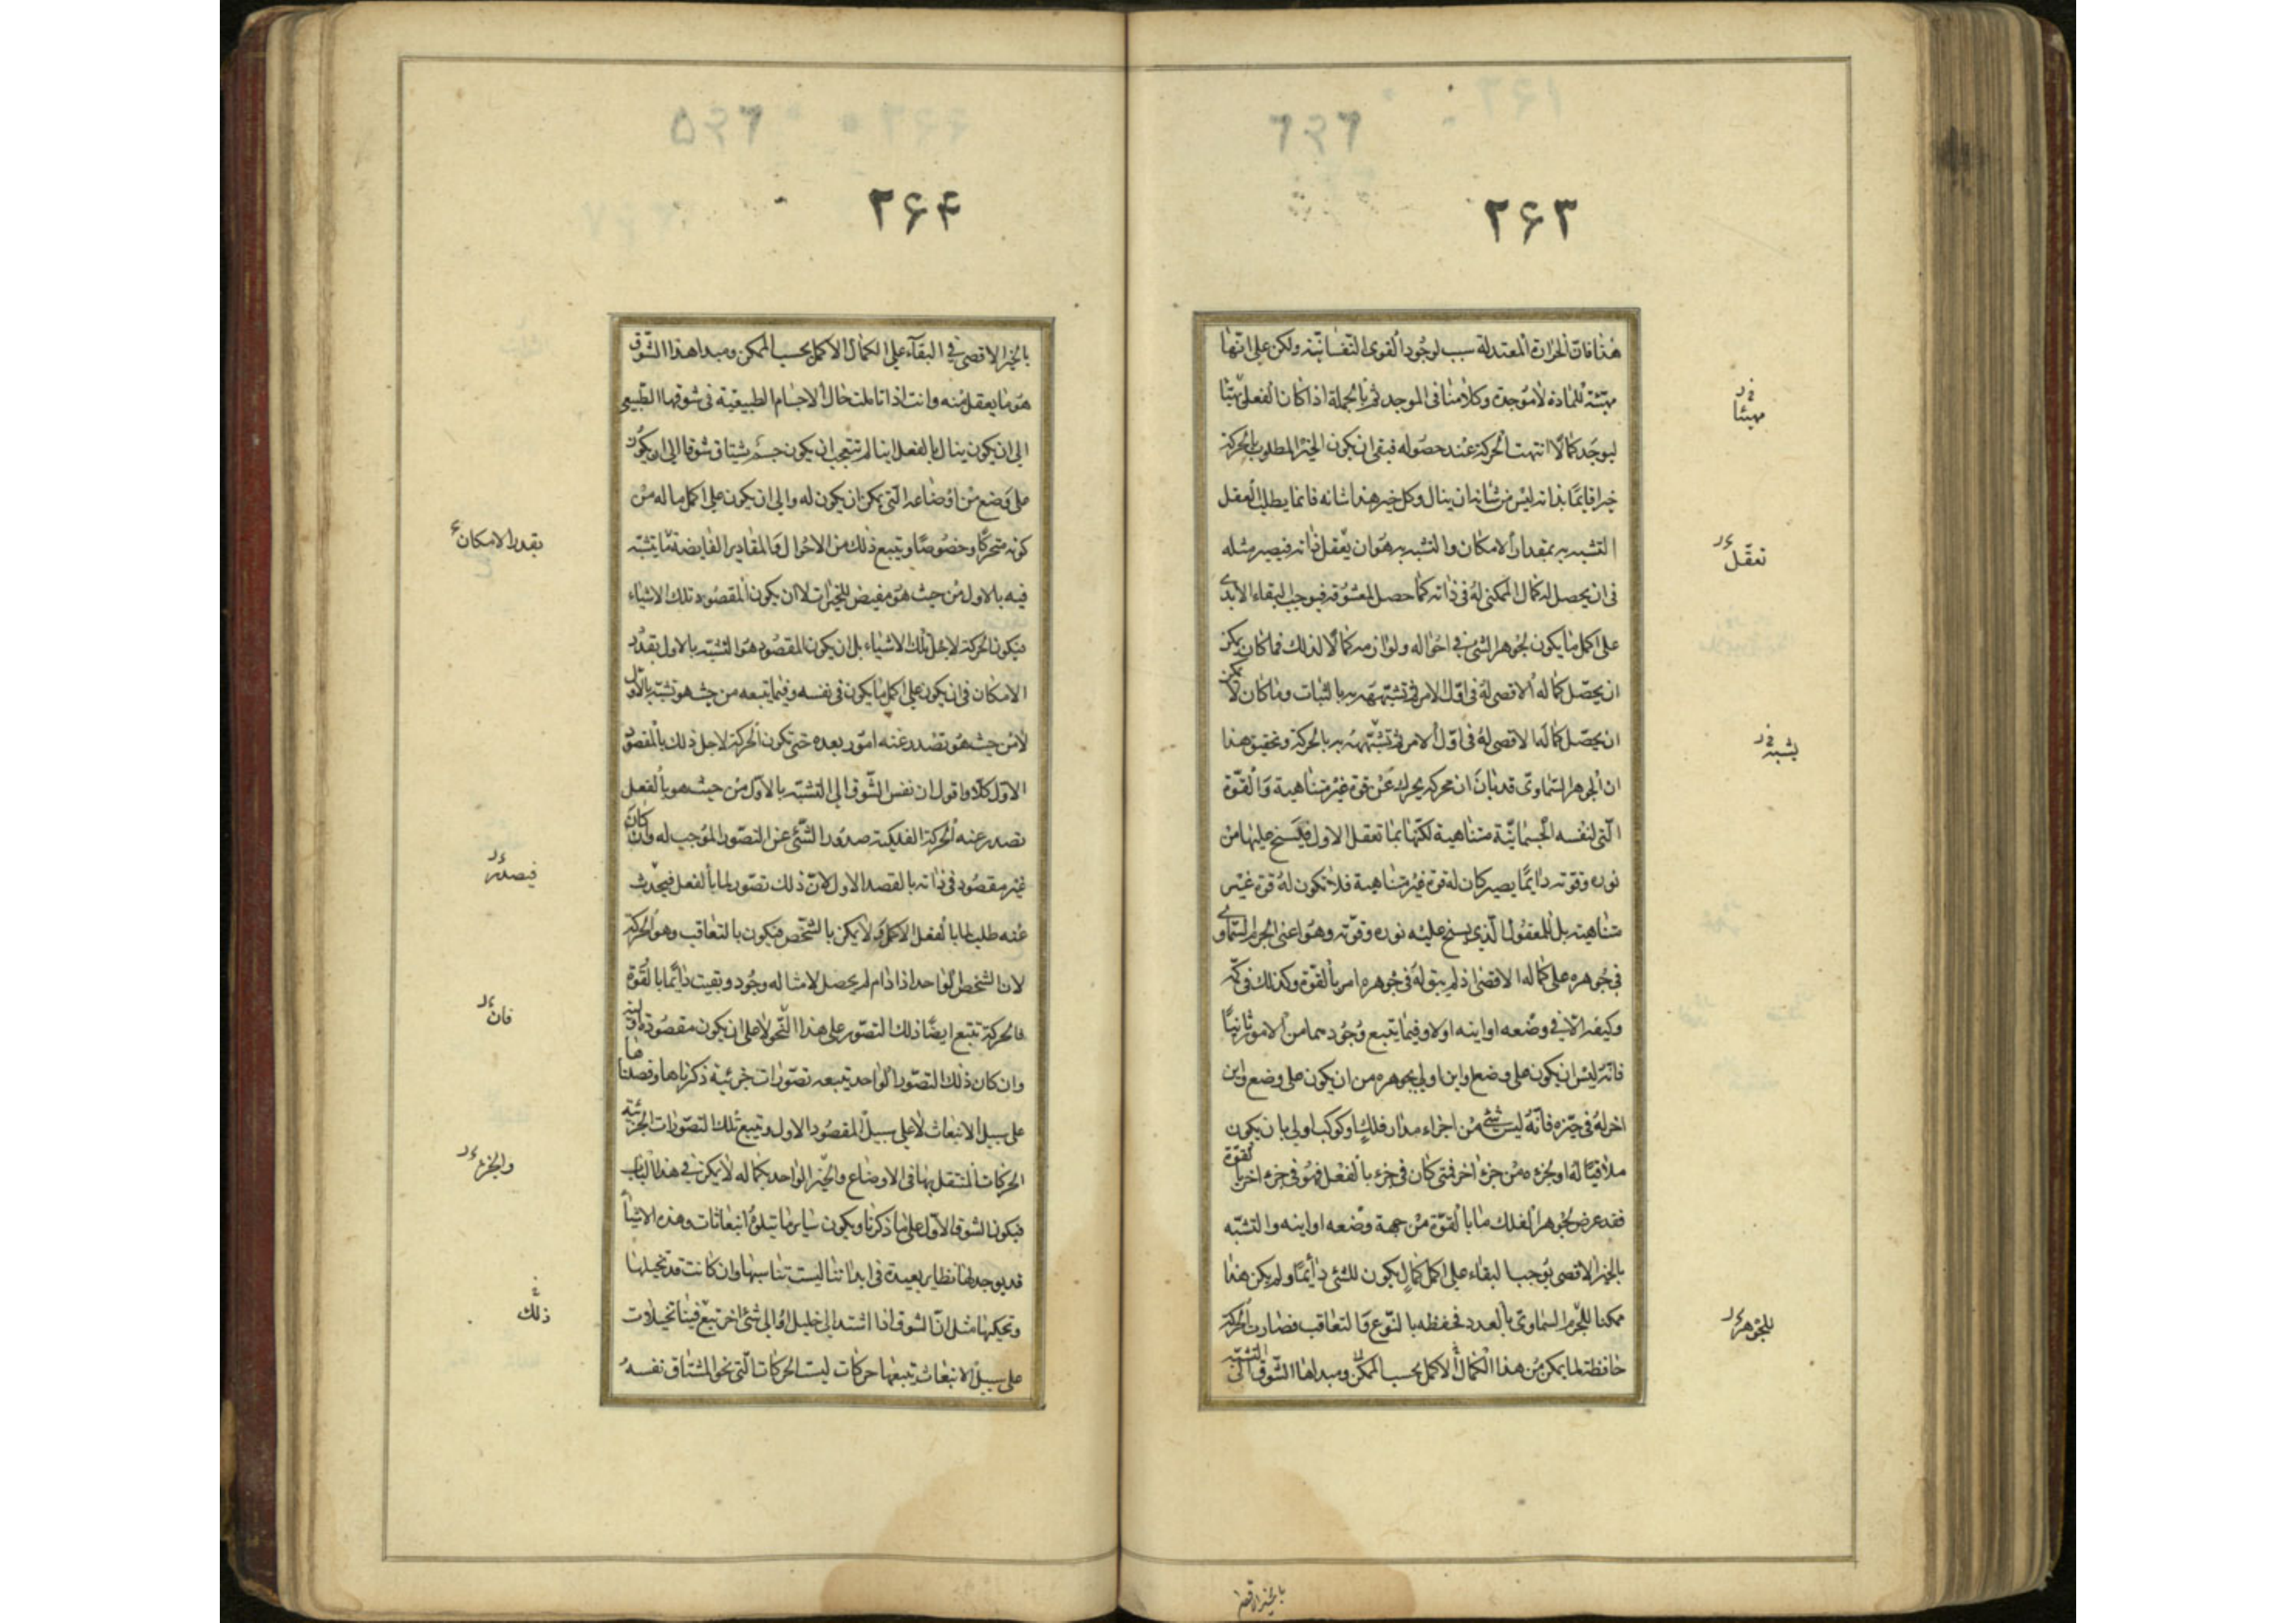 ٢۶٣
هذا فان الحرارة المعتدلة سبب لوجود القوى النفسانية ولكن على انها
مهيئة للمادة لا موجدة وكلامنا فى الموجد ثم بالجملة اذا كان الفعل مهيئا
ليوجد كمالا انتهت الحركة عند حصوله فبقى ان يكون الخير المطلوب بالحركة
خيرا قائما بذاته ليس من شانه ان ينال وكل خير هذا شانه فانما يطلب العقل
التشبه به بمقدار الامكان والتشبه به هو ان يعقل ذاته فيصير مثله
فى ان يحصل له كمال الممكن له فى ذاته كما حصل لمعشوقه فيوجب البقاء الابدى
على اكمل ما يكون لجوهر الشئ فى احواله ولوازمه كمالا لذلك فما كان يمكن
ان يحصل كماله الاقصى له فى اول الامر تم تشبهه به بالثبات وما كان لا يمكن
ان يحصل كماله الاقصى له فى اول الامر تم تشبهه به بالحركة وتحقيق هذا
ان الجوهر السماوى قد بان ان محركه يحرك عن قوة غير متناهية والقوة
التى لنفسه الجسمانية متناهية لكنها بما تعقل الاول فيسنح عليها من
نوره وقوته دائما يصير كان له قوة غير متناهية فلا تكون له قوة غير
متناهية بل للمعقول الذى يسنح عليه نوره وقوته وهو اعنى الجرم السماوى
فى جوهره على كماله الاقصى اذ لم يبق له فى جوهره امر بالقوة وكذلك فى كمه
وكيفه الا فى وضعه او اينه اولا وفيما يتبع وجودهما من الامور ثانيا
فانه ليس ان يكون على وضع او اين اولى بجوهره من ان يكون على وضع واين
اخر له فى حيزه فانه ليس شئ من اجزاء مدار فلك او كوكب اولى بان يكون
ملاقيا له او لجزءه من جزء اخر فمتى كان فى جزء بالفعل فهو فى جزء اخر بالقوة
فقد عرض لجوهر الفلك ما بالقوة من جهة وضعه او اينه والتشبه
بالخير الاقصى يوجب البقاء على اكمل كمال يكون للشئ دائما ولم يكن هذا
ممكنا للجرم السماوى بالعدد فحفظه بالنوع والتعاقب فصارت الحركة
حافظة لما يمكن من هذا الكمال الاكمل بحسب الممكن ومبداها الشوق الى التشبه
مهيئا
تعقل
يشبه
للجوهر
بالخير الاقصى
٢۶۴
بالخير الاقصى فى البقاء على الكمال الاكمل بحسب الممكن ومبدا هذا الشوق
هو ما يعقل منه وانت اذا تاملت حال الاجسام الطبيعية فى شوقها الطبيعى
الى ان يكون ينال بالفعل اينا لم تتعجب ان يكون جسم يشتاق شوقا الى ان يكون
على وضع من اوضاعه التى يمكن ان يكون له والى ان يكون على اكمل ما له من
كونه متحركا وخصوصا ويتبع ذلك من الاحوال والمقادير الفايضة ما يتشبه
فيه بالاول من حيث هو مفيض للخيرات لا ان يكون المقصود تلك الاشياء
فيكون الحركة لاجل تلك الاشياء بل ان يكون المقصود هو التشبه بالاول بقدر
الامكان فى ان يكون على اكمل ما يكون فى نفسه وفيما يتبعه من حيث هو تشبه بالاول
لا من حيث هو تصدر عنه امور بعده حتى تكون الحركة لاجل ذلك بالمقصود
الاول كلا واقول ان نفس الشوق الى التشبه بالاول من حيث هو بالفعل
تصدر عنه الحركة الفلكية صدور الشئ عن التصور الموجب له وان كان
غير مقصود فى ذاته بالقصد الاول لان ذلك تصور لما بالفعل فيحدث
عنه طلب لما بالفعل الاكمل ولا يمكن بالشخص فيكون بالتعاقب وهو الحركة
لان الشخص الواحد اذا دام لم يحصل لامثاله وجود وبقيت دائما بالقوة
فالحركة تتبع ايضا ذلك التصور على هذا النحو لا على ان يكون مقصودة اولية
وان كان ذلك التصور الواحد يتبعه تصورات جزئية ذكرناها وفصلناها
على سبيل الانبعاث لا على سبيل المقصود الاول ويتبع تلك التصورات الجزئية
الحركات المنتقل بها فى الاوضاع والخير الواحد بكماله لا يمكن فى هذا الباب
فيكون الشوق الاول على ما ذكرنا ويكون ساير ما يتلوه انبعاثات وهذه الاشياء
قد يوجد لها نظاير بعيدة فى ابداننا ليست تناسبها وان كانت قد تخيلها
وتحكيها مثل ان الشوق اذا اشتد الى خليل او الى شئ اخر تبع فينا تخيلات
على سبيل الانبعاث تتبعها حركات ليست الحركات التى نحو المشتاق نفسه
بقدر الامكان
فيصدر
فان
والجزء
ذلك